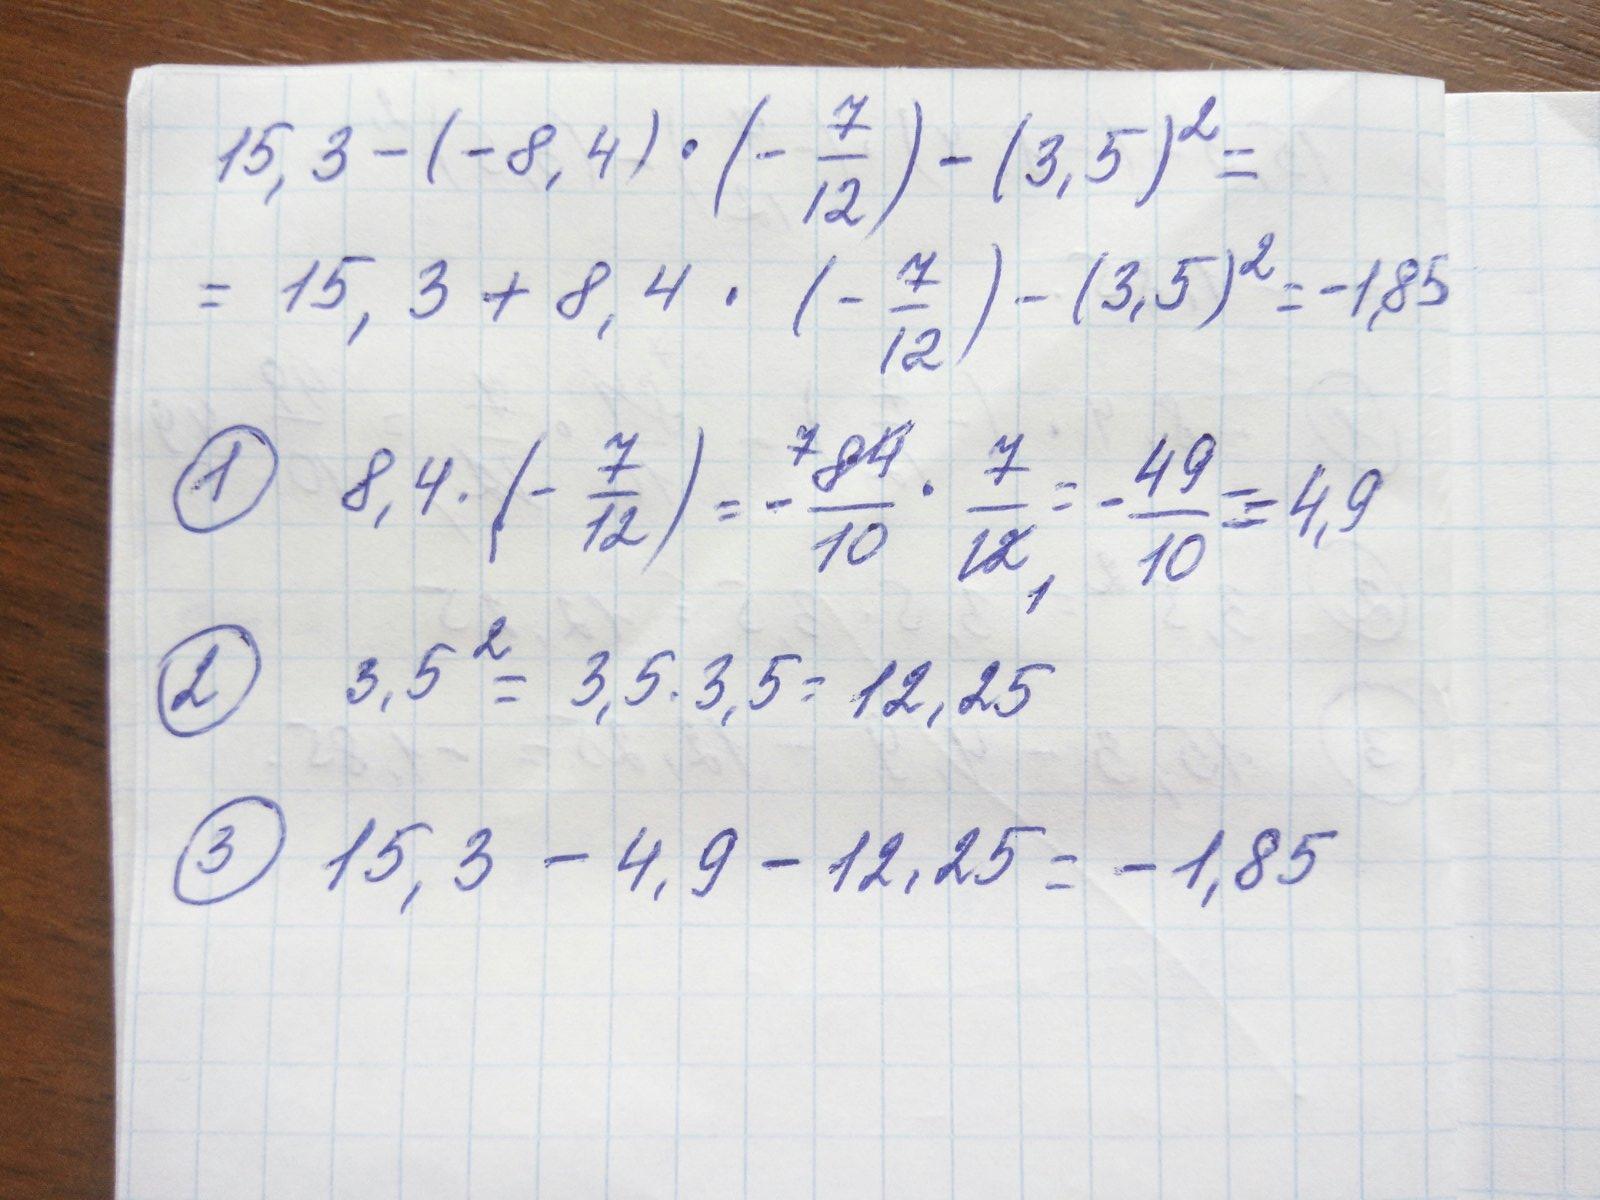 15,3 - (-8,4) · (- 7/12) - (3,5)² =
= 15,3 + 8,4 · (- 7/12) - (3,5)² = -1,85
① 8,4 · (- 7/12) = - 7 84/10 · 7/12 1 = - 49/10 = 4,9
② 3,5² = 3,5 · 3,5 = 12,25
③ 15,3 - 4,9 - 12,25 = -1,85